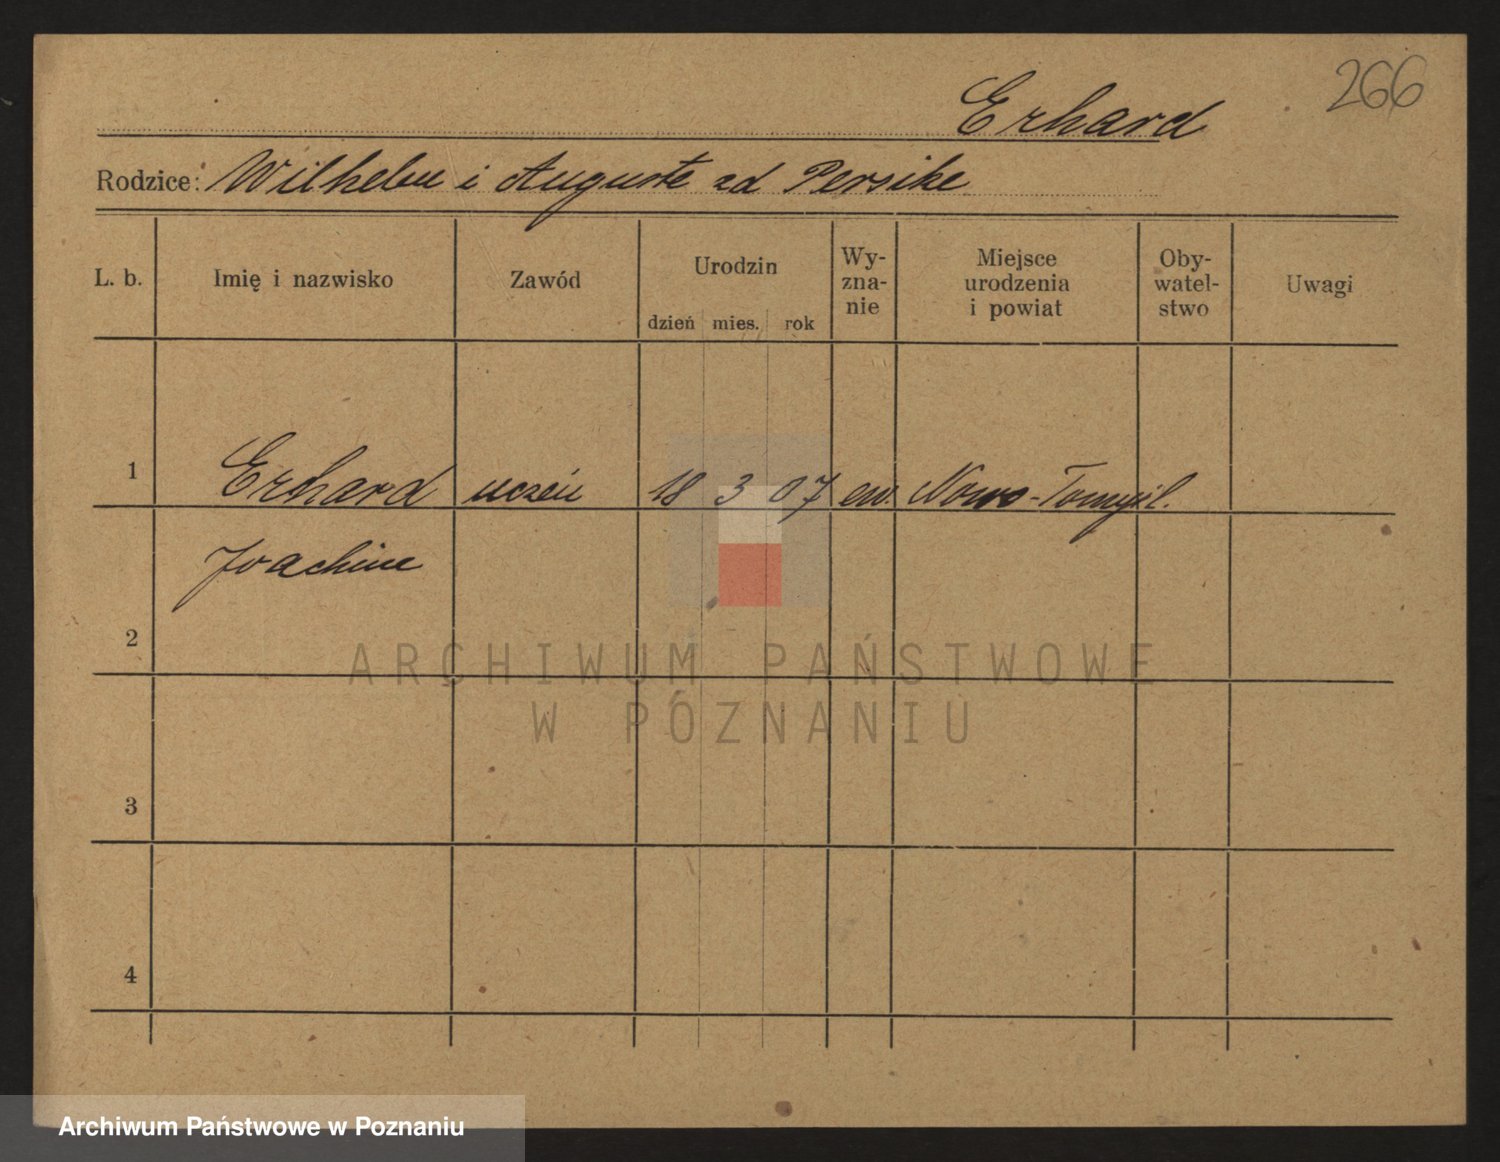 266
Erhard
Rodzice: Wilhelm i Auguste zd Persike
L. b. Imię i nazwisko Zawód Urodzin dzień mies. rok Wy-zna-nie Miejsce urodzenia i powiat Oby-watel-stwo Uwagi
1 Erhard uczeń 18 3 07 ew. Nowo-Tomyśl.
Joachim
2
ARCHIWUM PAŃSTWOWE
W POZNANIU
3
4
Archiwum Państwowe w Poznaniu